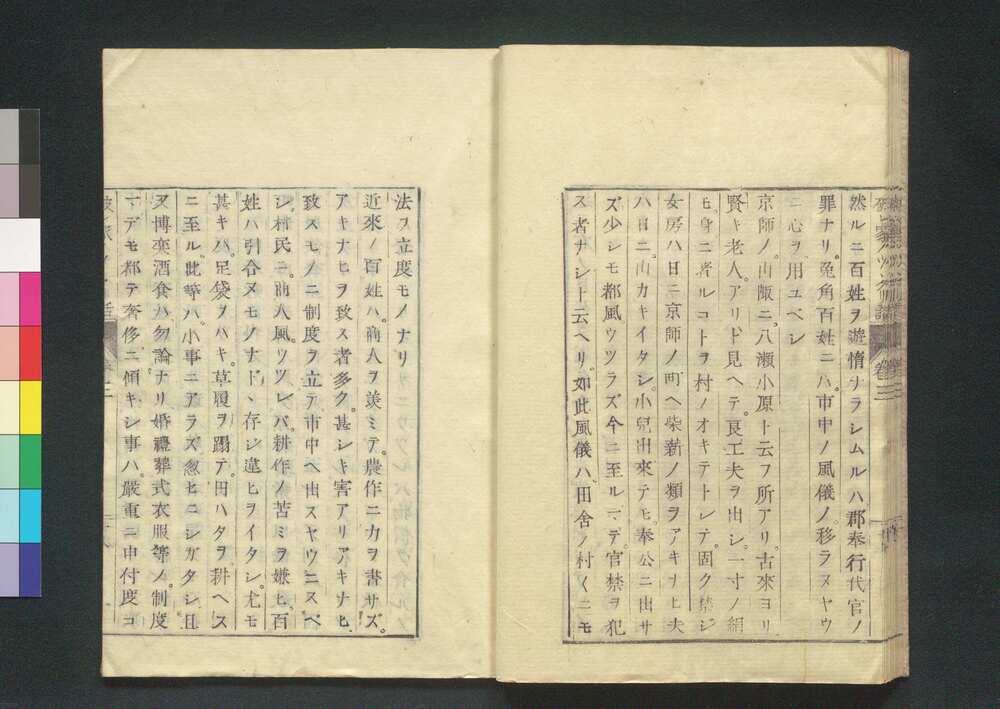 然ルニ百姓ヲ遊惰ナラシムルハ郡奉行代官ノ
罪ナリ。兔角百姓ニハ。市中ノ風儀ノ。移ラヌヤウ
ニ心ヲ用ユベシ
京師ノ。山敵ニ。八瀬小原ト云フ所アリ。古來ヨリ
賢キ老人。アリト見ヘテ。良工夫ヲ出シ。一寸ノ絹
モ。身ニ着ルコトヲ村ノオキテトシテ。固ク禁ジ
女房ハ日ニ京師ノ町ヘ柴薪ノ類ヲアキナヒ夫
ハ日ニ。山カキイタシ。小兒出來テモ。奉公ニ出サ
ズ少シモ都風ウツラズ今ニ至ルマデ。官禁ヲ犯
ス者ナシト云ヘリ。如此風儀ハ。田舎ノ村々ニモ
法ヲ立度モノナリ
近來ノ百姓ハ。商人ヲ羨ミテ。農作ニ力ヲ書サズ。
アキナヒヲ致ス者多ク。甚シキ害アリアキナヒ
致スモノニ制度ヲ立テ市中ヘ出スヤウニスベ
シ村民ニ。商人風。ウツレバ。耕作ノ苦ミヲ嫌ヒ。百
姓ハ引合ヌモノナド、存シ違ヒヲイタシ。尤モ
甚キハ。足袋ヲハキ。草履ヲ躡テ。田ハタヲ耕ヘス
ニ至ル。此等ハ。小事ニアラズ忽ヒニシガタシ且
又博奕酒食ハ勿論ナリ婚禮葬式衣服等ノ。制度
マデモ都テ奢侈ニ傾キシ事ハ。嚴重ニ申付度コ